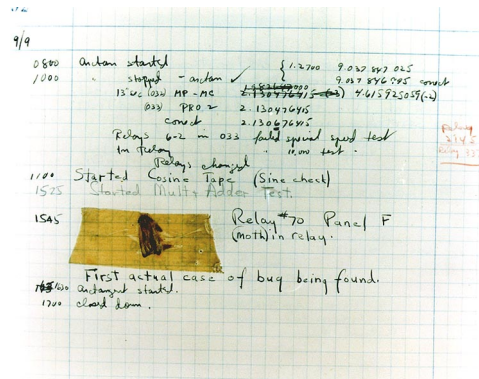 9/9
0800 Antan started { 1.2700 9.037 847 025
1000 " stopped - antan ✓ 9.037 846 995 correct
13"UC (033) MP-MC 2.130476415 4.615925059(-2)
(033) PRO 2 2.130476415
correct 2.130676415
Relays 6-2 in 033 failed special speed test
In Relay " 10,000 test.
Relays changed
1100 Started Cosine Tape (Sine check)
1525 Started Mult + Adder Test.
1545 Relay #70 Panel F
(Moth) in relay.
First actual case of bug being found.
1630 Antangent started.
1700 closed down.